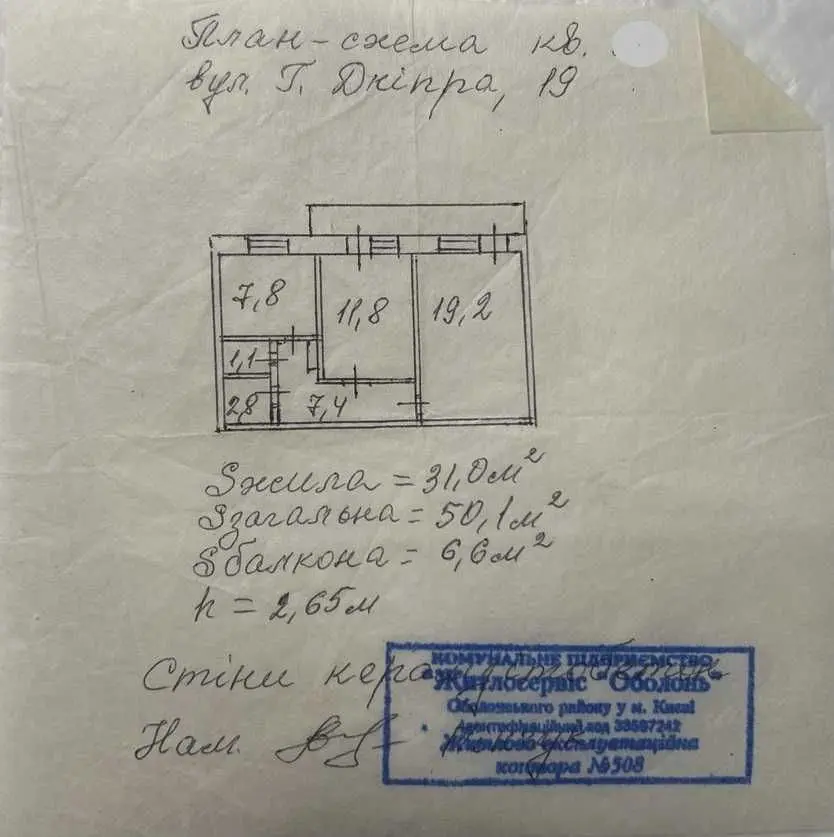 План-схема кв.
вул. Г. Дніпра, 19
7,8
11,8
19,2
1,1
2,8
7,4
Sжила = 31,0м²
Sзагальна = 50,1м²
Sбалкона = 6,6м²
h = 2,65м
Стіни керамзитобетон
Нам.
КОМУНАЛЬНЕ ПІДПРИЄМСТВО
"Житлосервіс "Оболонь"
Оболонського району у м. Києві
Ідентифікаційний код 33597242
Житлово-експлуатаційна
контора №508